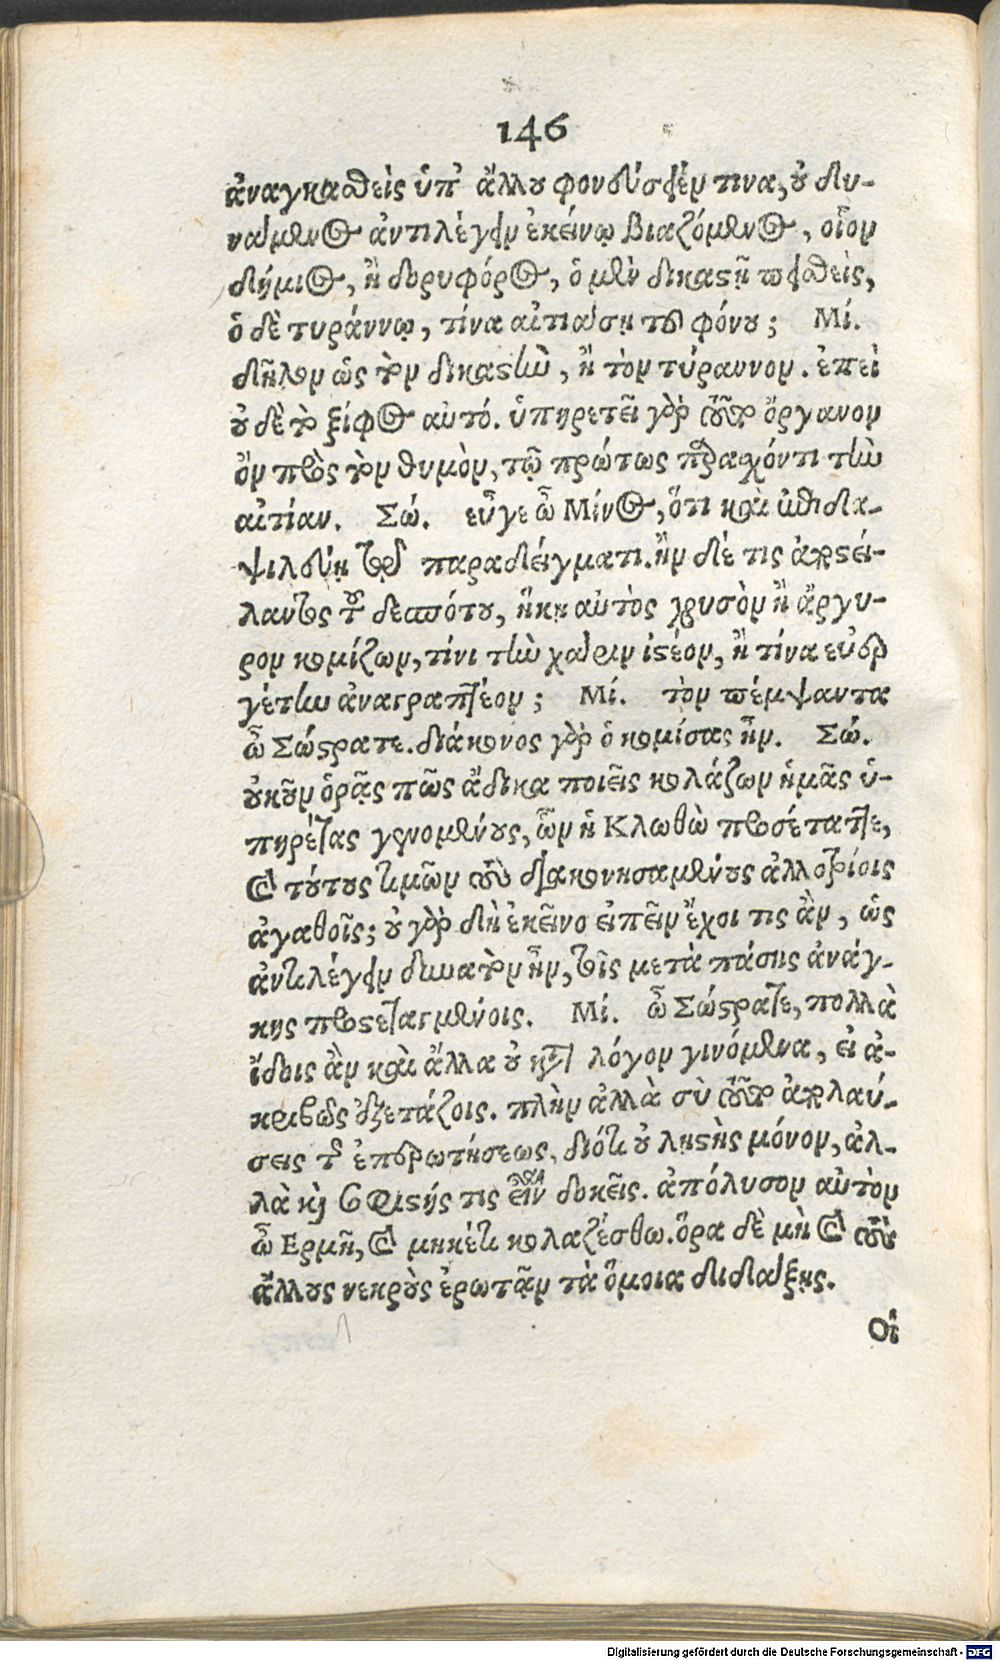 146
ἀναγκασθεὶς ὑπ' ἄλλου φονεύσῃέν τινα, οὐ δυ-
νάμενος ἀντιλέγειν ἐκείνῳ βιαζόμενος, οἷον
δήμιος, ἢ δορυφόρος, ὁ μὲν δικαστῇ πεισθεὶς,
ὁ δὲ τυράννῳ, τίνα αἰτιάσῃ τοῦ φόνου; Μί.
δῆλον ὡς τὸν δικαστὴν, ἢ τὸν τύραννον. ἐπεὶ
οὐδὲ τὸ ξίφος αὐτό. ὑπηρετεῖ γὰρ τοῦτο ὄργανον
ὂν πρὸς τὸν θυμὸν, τῷ πρώτως παρασχόντι τὴν
αἰτίαν. Σώ. εὖγε ὦ Μίνως, ὅτι καὶ ἐπιδα-
ψιλεύῃ τῷ παραδείγματι. ἢν δέ τις ἀποστεί-
λαντος τοῦ δεσπότου, ἥκῃ αὐτὸς χρυσὸν ἢ ἄργυ-
ρον κομίζων, τίνι τὴν χάριν ἰστέον, ἢ τίνα εὐερ
γέτην ἀναγραπτέον; Μί. τὸν πέμψαντα
ὦ Σώστρατε. διάκονος γὰρ ὁ κομίσας ἦν. Σώ.
οὐκοῦν ὁρᾷς πῶς ἄδικα ποιεῖς κολάζων ἡμᾶς ὑ-
πηρέτας γενομένους, ὧν ἡ Κλωθὼ προσέταττε,
καὶ τούτους τιμῶν τοὺς διακονησαμένους ἀλλοτρίοις
ἀγαθοῖς; οὐ γὰρ δὴ ἐκεῖνο εἰπεῖν ἔχοι τις ἂν, ὡς
ἀντιλέγειν δυνατὸν ἦν, τοῖς μετὰ πάσης ἀνάγ-
κης προστεταγμένοις. Μί. ὦ Σώστρατε, πολλὰ
ἴδοις ἂν καὶ ἄλλα οὐ κατὰ λόγον γινόμενα, εἰ ἀ-
κριβῶς ἐξετάζοις. πλὴν ἀλλὰ σὺ τοῦτο ἀπολαύ-
σεις τῆς ἐπερωτήσεως, διότι οὐ λῃστὴς μόνον, ἀλ-
λὰ καὶ σοφιστής τις εἶναι δοκεῖς. ἀπόλυσον αὐτὸν
ὦ Ἑρμῆ, καὶ μηκέτι κολαζέσθω. ὅρα δὲ μὴ καὶ τοὺς
ἄλλους νεκροὺς ἐρωτᾷν τὰ ὅμοια διδάξῃς.
Οἵ
Digitalisierung gefördert durch die Deutsche Forschungsgemeinschaft - DFG